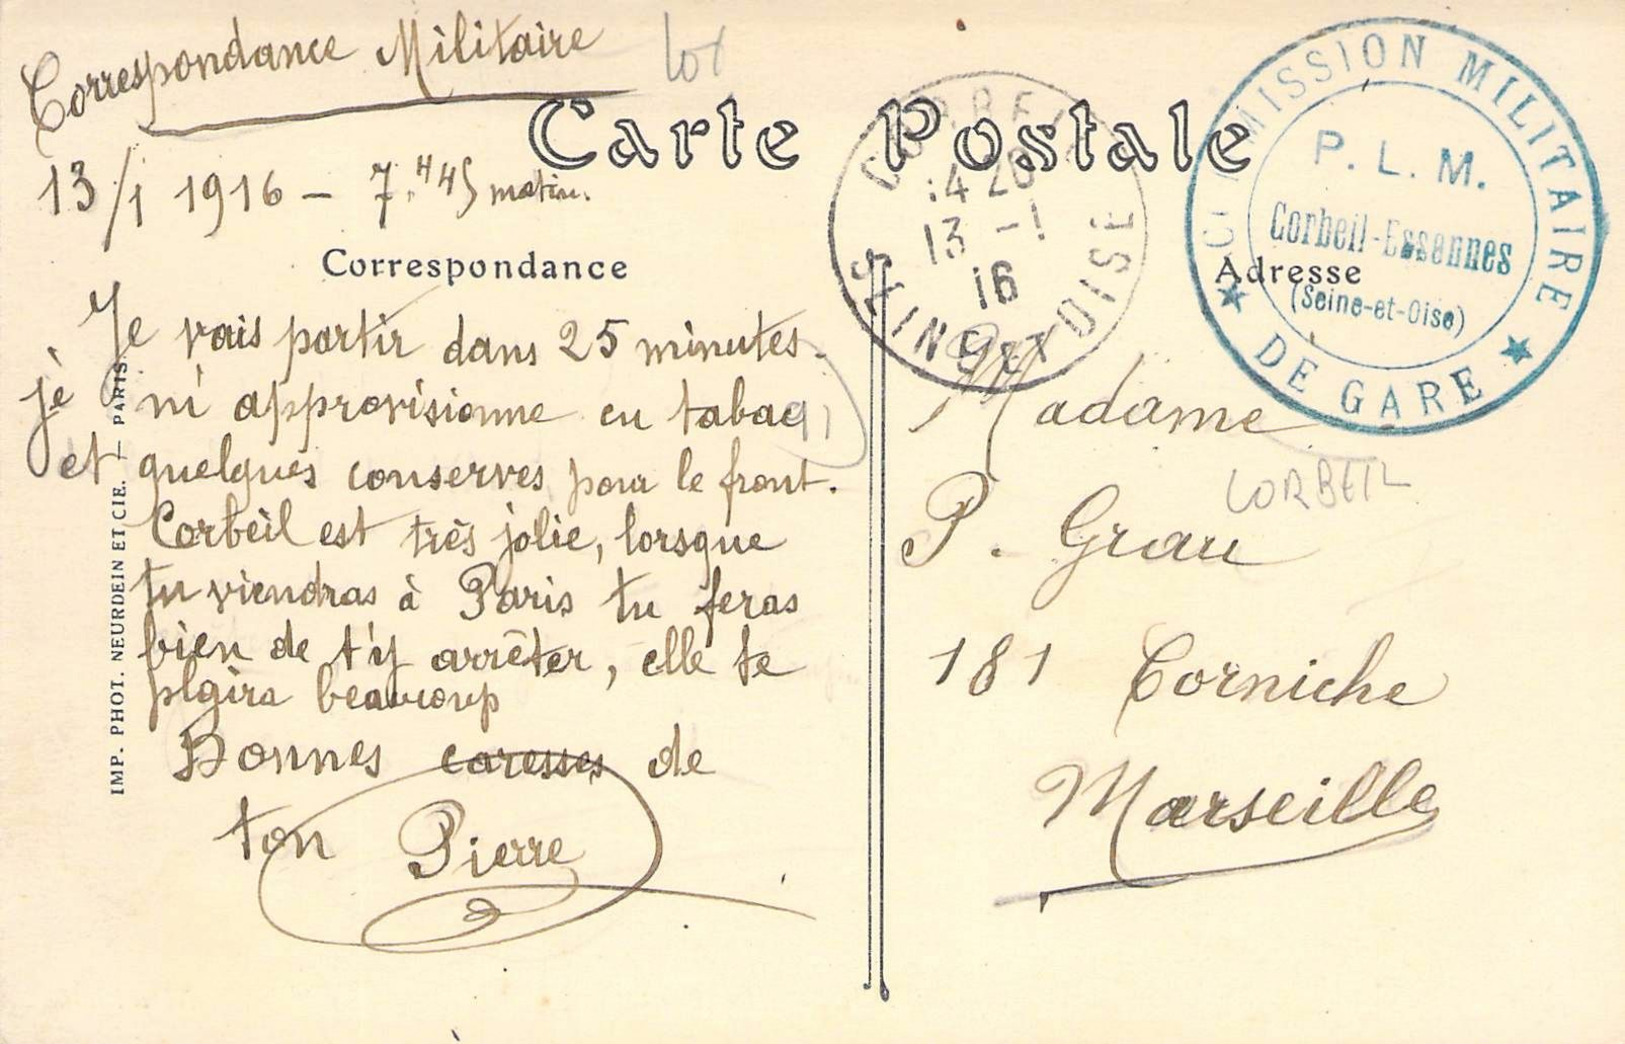 Correspondance Militaire
lot
13/1 1916 – 7.H45 matin.
Carte Postale
Correspondance
Je vais partir dans 25 minutes.
jè m'approvisionne en tabac,
et quelques conserves pour le front.
Corbeil est très jolie, lorsque
tu viendras à Paris tu feras
bien de t'y arrêter, elle te
plaira beaucoup
Bonnes caresses de
ton Pierre
IMP. PHOT. NEURDEIN ET CIE. — PARIS
CORBEIL
14 20
13 -1
16
SEINE ET OISE
COMMISSION MILITAIRE
P. L. M.
Corbeil-Essonnes
(Seine-et-Oise)
★ DE GARE ★
Adresse
Madame
CORBEIL
P. Grau
181 Corniche
Marseille